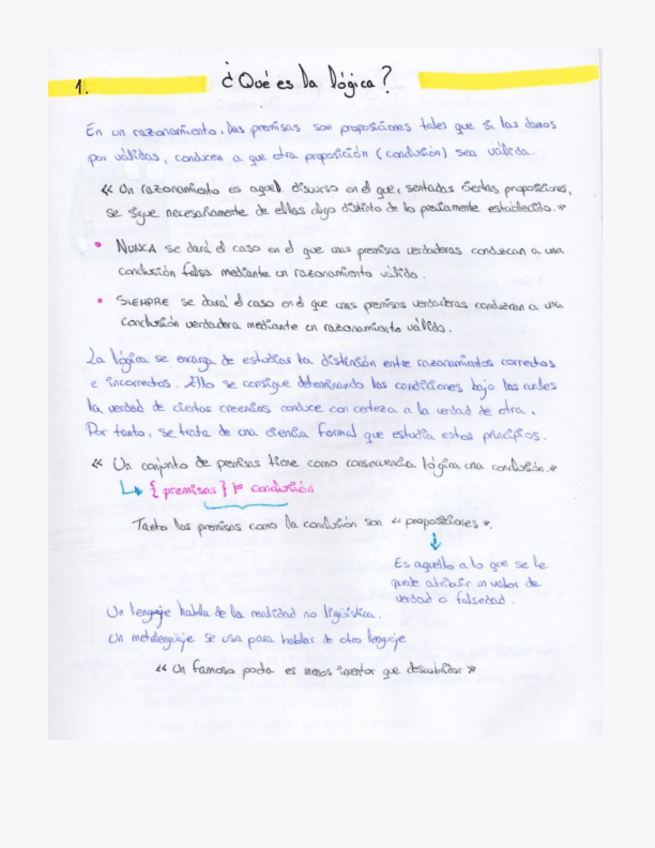 1. ¿Qué es la lógica?
En un razonamiento, las premisas son proposiciones tales que si las damos
por válidas, conducen a que otra proposición (conclusión) sea válida.
« Un razonamiento es aquel discurso en el que, sentadas ciertas proposiciones,
se sigue necesariamente de ellas algo distinto de lo previamente establecido. »
• NUNCA se dará el caso en el que unas premisas verdaderas conduzcan a una
conclusión falsa mediante un razonamiento válido.
• SIEMPRE se dará el caso en el que unas premisas verdaderas conduzcan a una
conclusión verdadera mediante un razonamiento válido.
La lógica se encarga de estudiar la distinción entre razonamientos correctos
e incorrectos. Ello se consigue determinando las condiciones bajo las cuales
la verdad de ciertas creencias conduce con certeza a la verdad de otra.
Por tanto, se trata de una ciencia formal que estudia estos principios.
« Un conjunto de premisas tiene como consecuencia lógica una conclusión. »
↳ { premisas } ⊨ conclusión
Tanto las premisas como la conclusión son « proposiciones ».
↓
Es aquello a lo que se le
puede atribuir un valor de
verdad o falsedad.
Un lenguaje habla de la realidad no lingüística.
Un metalenguaje se usa para hablar de otro lenguaje
« Un famoso poeta es menos inventor que descubridor »